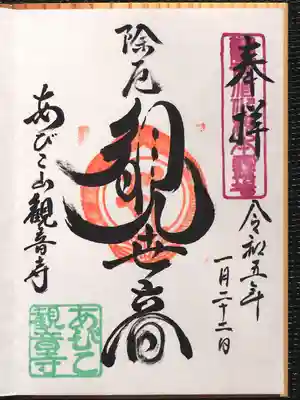 奉拝
令和五年
一月二十二日
除厄
観世音
あびこ山観音寺
あびこ
観音寺